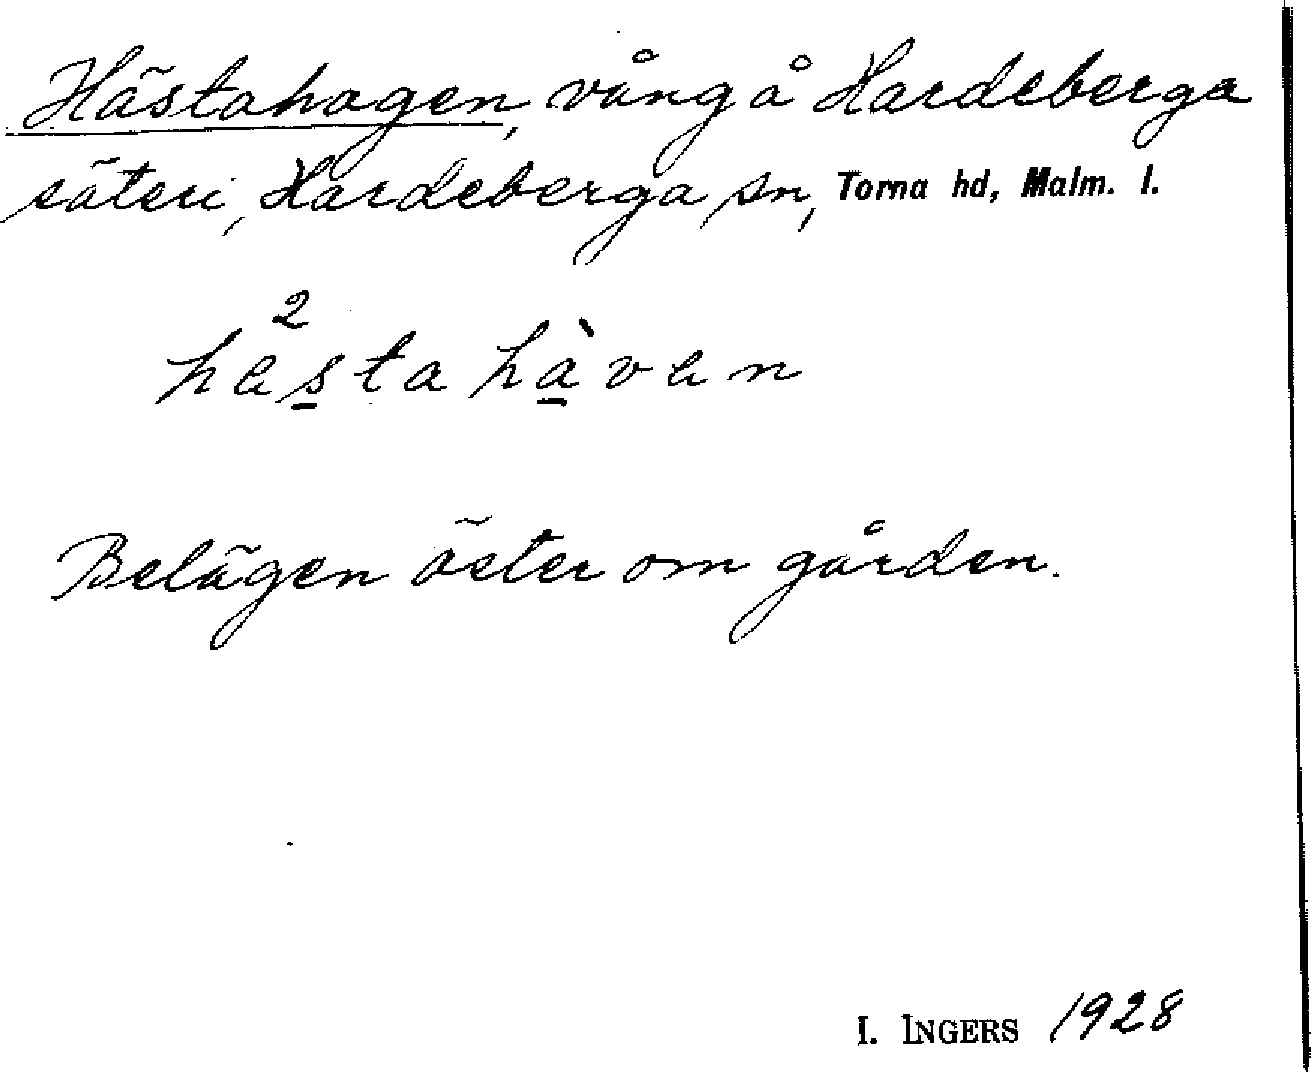 Hästahagen, vång å Hardeberga
säteri, Hardeberga sn, Torna hd, Malm. l.
2
hästa hàvan
Belägen öster om gården.
I. INGERS 1928